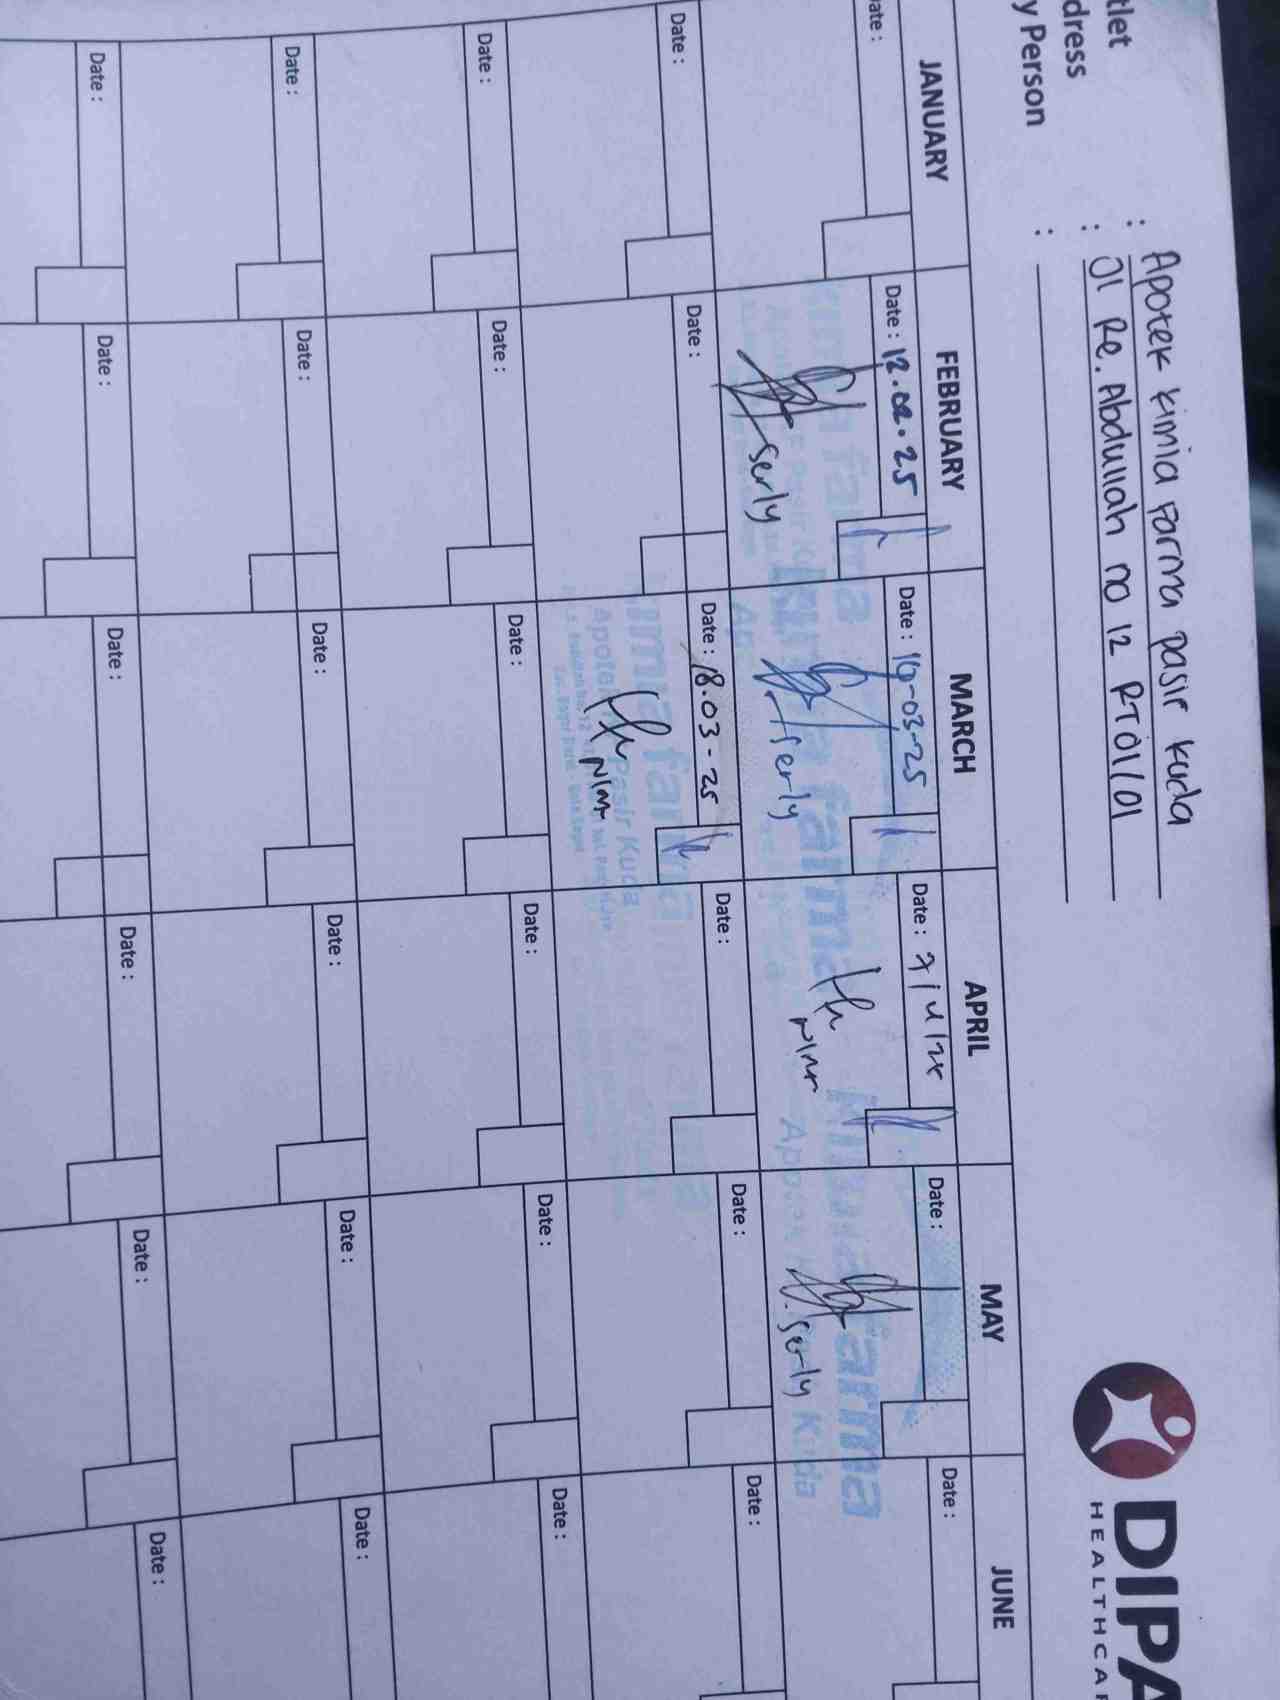 tlet : Apotek kimia Farma pasir kuda
dress : Jl Re. Abdullah no 12 RT01/01
y Person :
DIPA
HEALTHCA
JANUARY FEBRUARY MARCH APRIL MAY JUNE
ate : Date : 12.02.25 Date : Date : Date : Date :
serly serly Nina serly
kimia farma kimia farma kimia farma
Date : Date : Date : 18.03-25 Date : Date : Date :
Nina
kimia farma
Apotek Pasir Kuda
Date : Date : Date : Date : Date : Date :
Date : Date : Date : Date : Date : Date :
Date : Date : Date : Date : Date : Date :